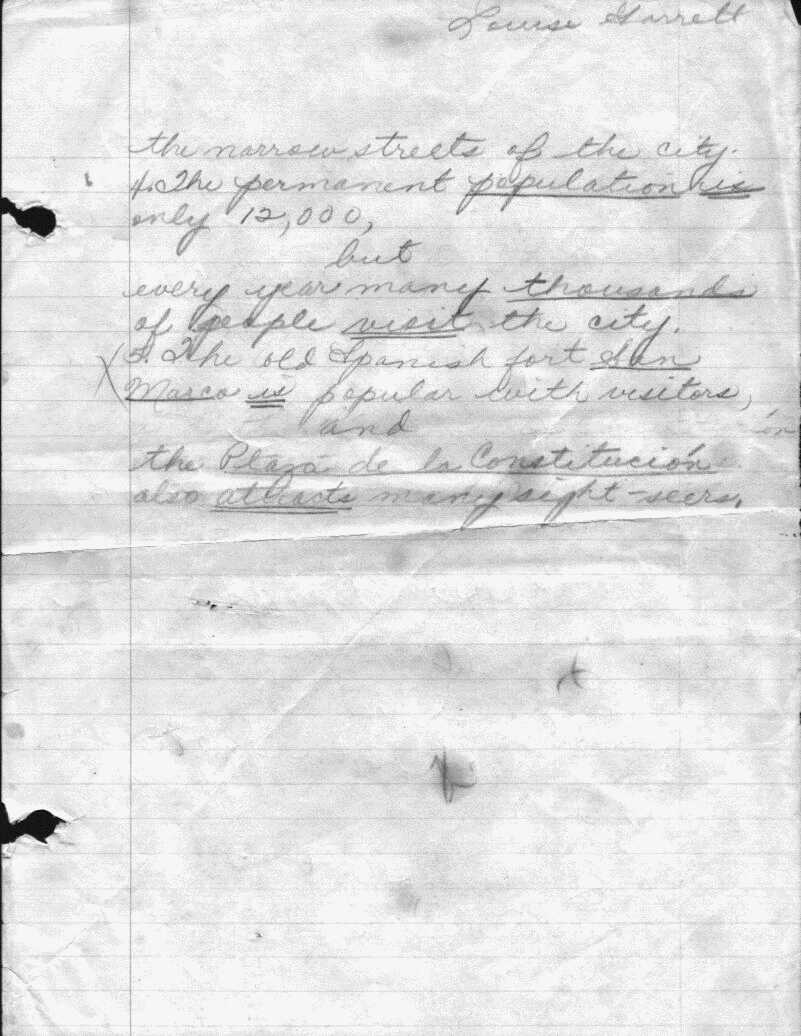 Louise Garrett
the narrow streets of the city.
4. The permanent population is
only 12,000,
but
every year many thousands
of people visit the city.
X 5. The old Spanish fort San
Marco is popular with visitors,
and
ón
the Plaza de la Constitución
also attracts many sight-seers.